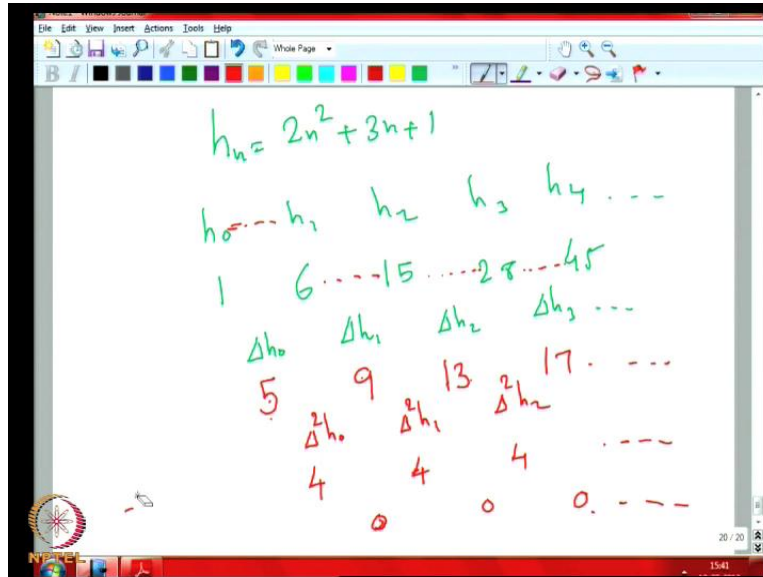 Note1 - Windows Journal
File Edit View Insert Actions Tools Help
Whole Page
B I
hₙ = 2n² + 3n + 1
h₀ ---- h₁ h₂ h₃ h₄ . ---
1 6 ----- 15 ----- 28 ---- 45
Δh₀ Δh₁ Δh₂ Δh₃ ---
5 9 13 17 . ----
Δ²h₀ Δ²h₁ Δ²h₂
4 4 4 . ----
0 0 0. ----
20 / 20
NPTEL
15:41